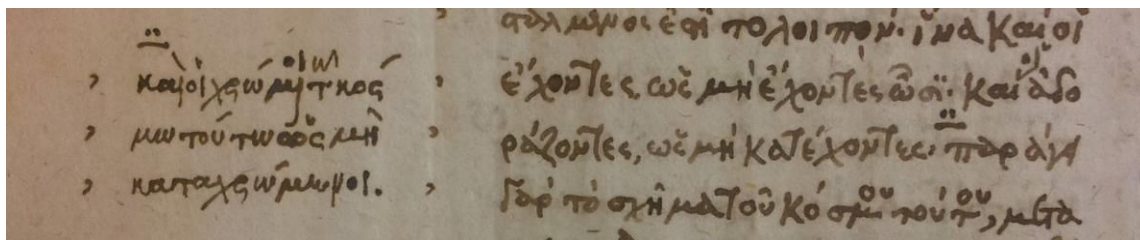 καὶ οἱ χρώμενοι τῶ κόσ
μω τούτω ὡς μὴ
καταχρώμενοι.
τὸ λοιπόν· ἵνα καὶ οἱ
ἔχοντες, ὡς μὴ ἔχοντες ὦσϊ· καὶ οἱ ἀγο
ράζοντες, ὡς μὴ κατέχοντες· παράγει
γὰρ τὸ σχῆμα τοῦ κόσμου τούτου, μετὰ